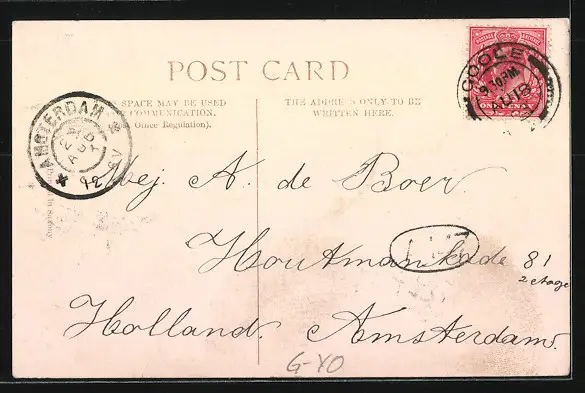 POST CARD
SPACE MAY BE USED
COMMUNICATION.
Office Regulation).
THE ADDRESS ONLY TO BE
WRITTEN HERE.
GOOLE
9.10PM
ONE PENNY
AMSTERDAM
Mej. A. de Boer.
Houtmankade 81
2 etage
Holland. Amsterdam.
G-YO